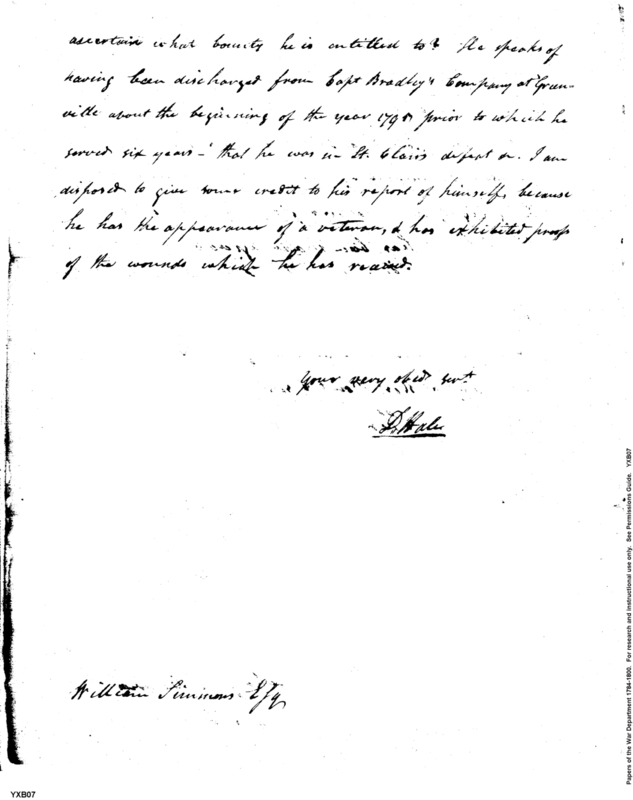 ascertain what bounty he is entitled to? He speaks of
having been discharged from Capt Bradley's Company at Green-
ville about the beginning of the year prior to which he
served six years - that he was in St. Clairs defeat &c. I am
disposed to give some credit to his report of himself, because
he has the appearance of a veteran, & has exhibited proofs
of the wounds which he has received.
Your very obed. servt.
Hale
William Simmons Esq
YXB07
Papers of the War Department 1784-1800. For research and instructional use only. See Permissions Guide. YXB07